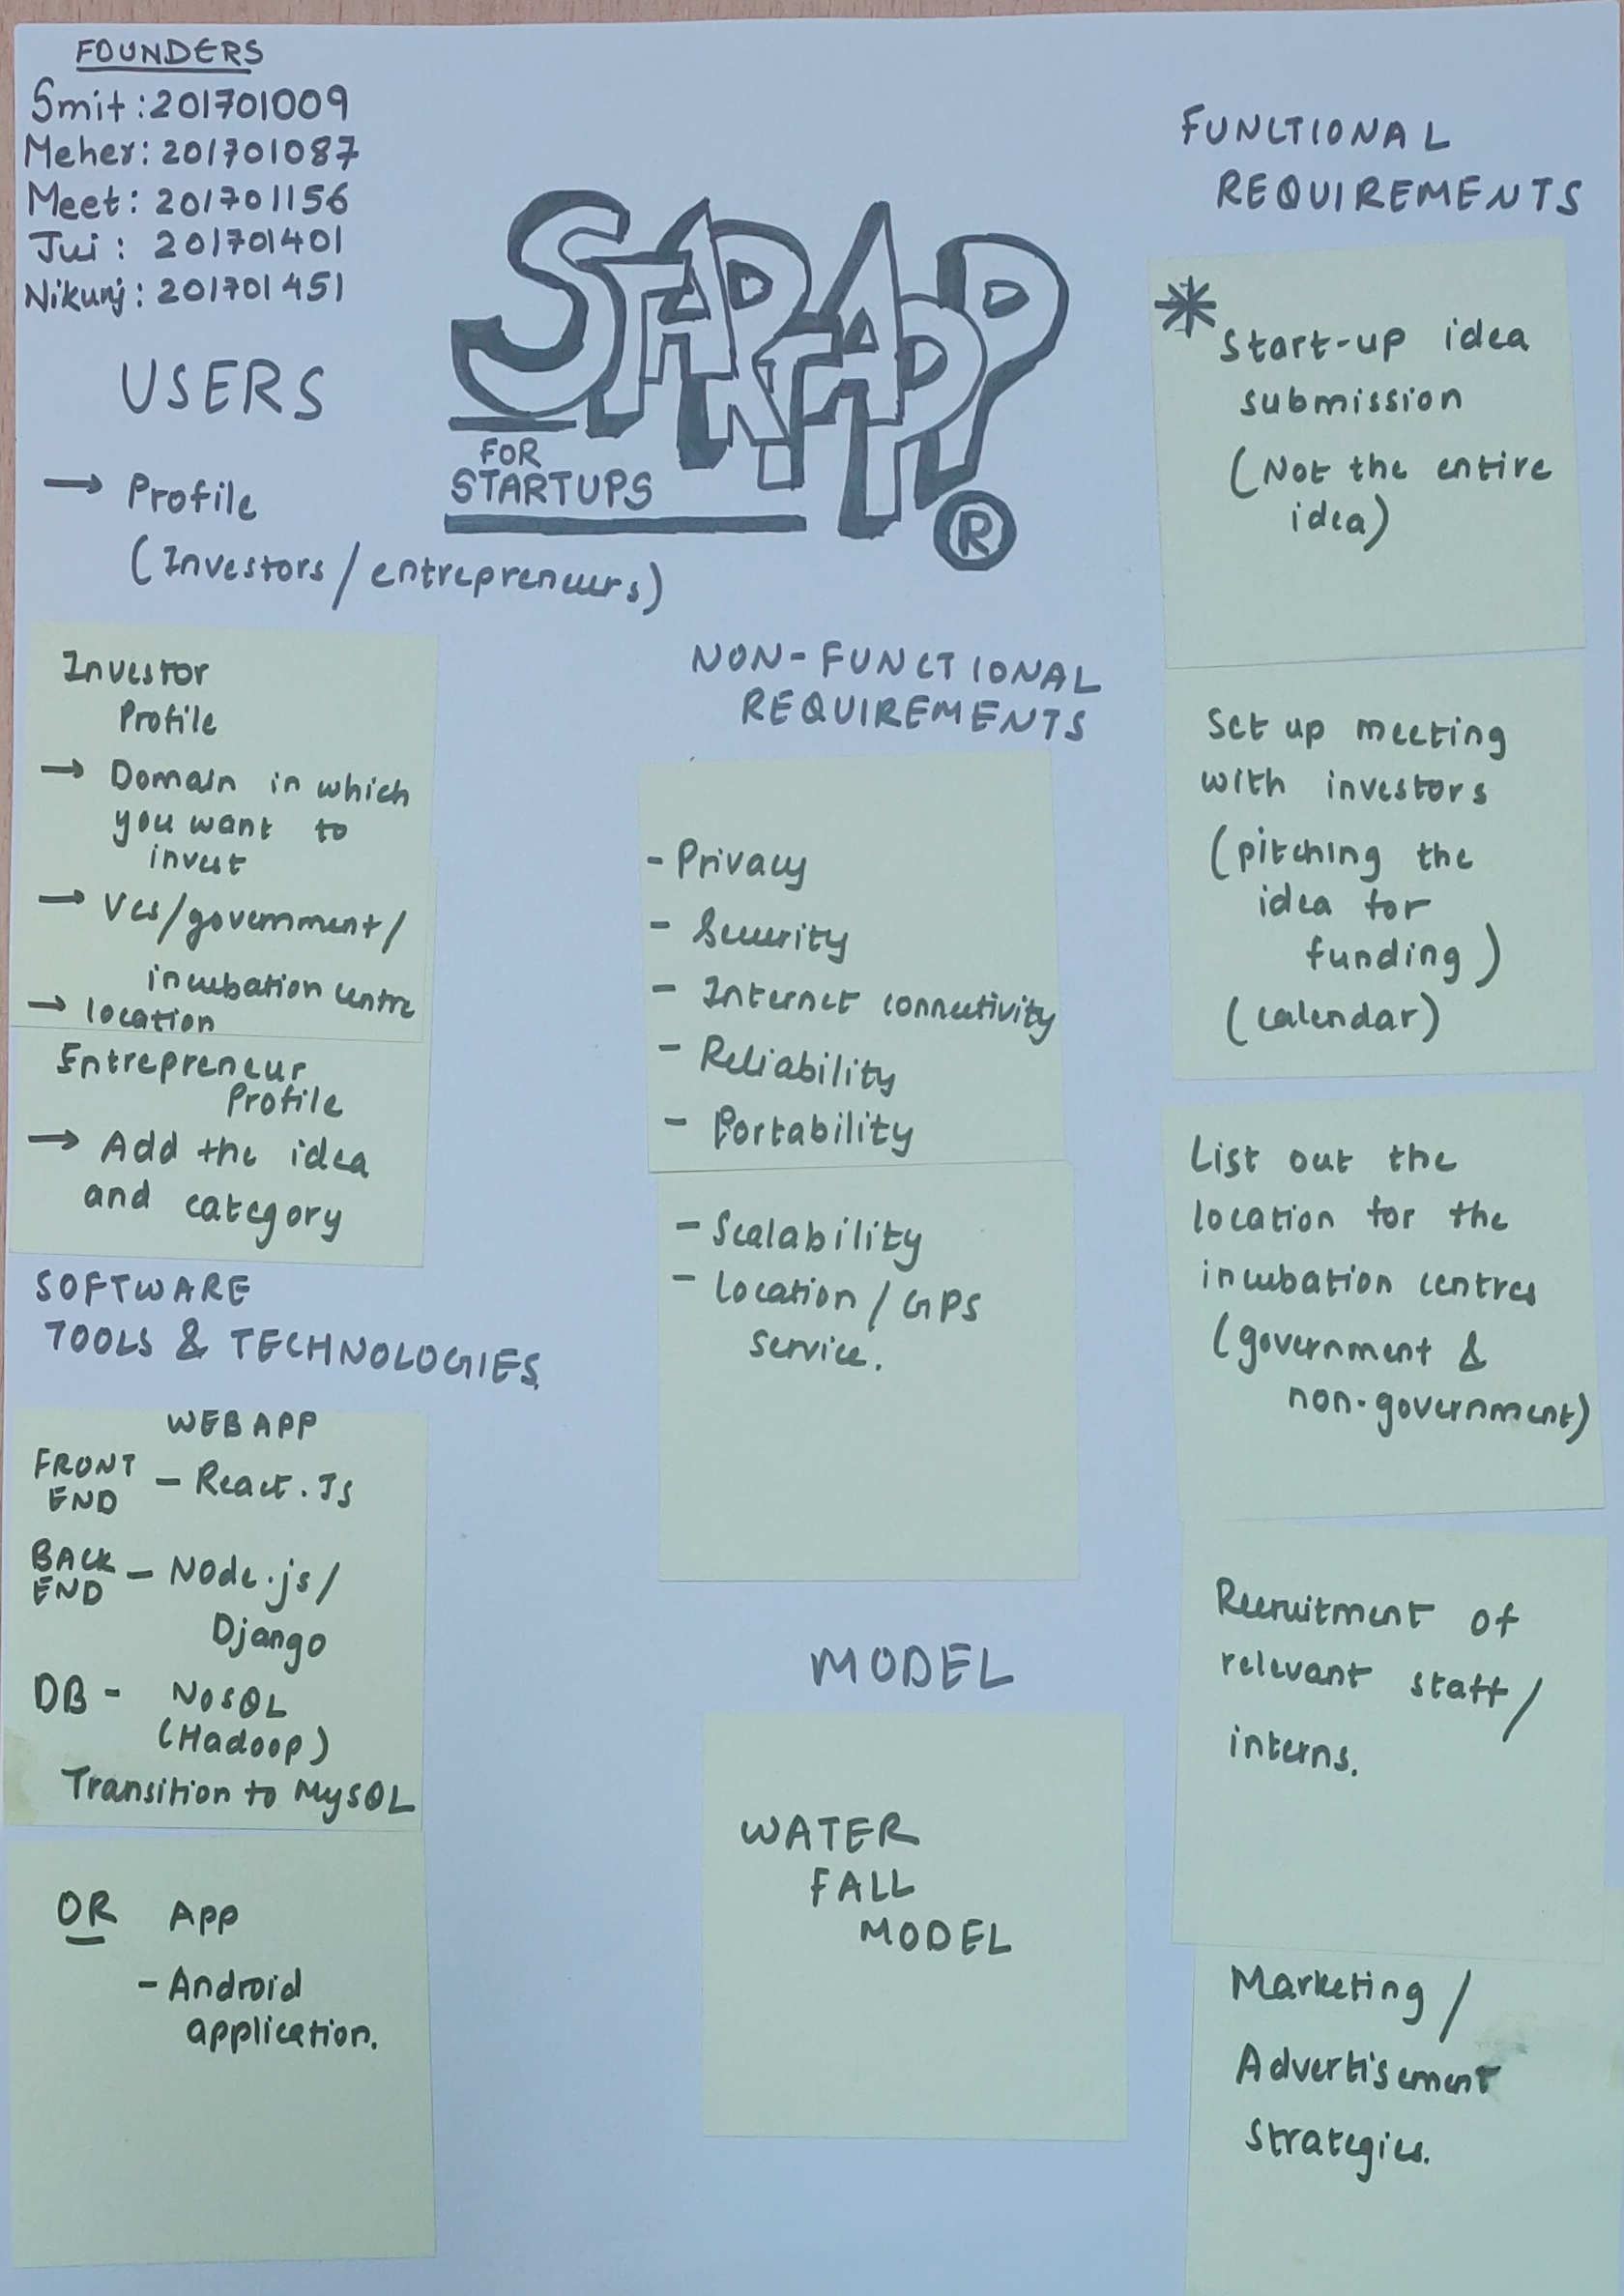 FOUNDERS
Smit : 201701009
Meher: 201701087
Meet: 201701156
Jui : 201701401
Nikunj : 201701451
STARTAPP
FOR
STARTUPS
®
USERS
→ Profile
(Investors / entrepreneurs)
Investor
Profile
→ Domain in which
you want to
invest
→ VCs/government/
incubation centre
→ location
Entrepreneur
Profile
→ Add the idea
and category
SOFTWARE
TOOLS & TECHNOLOGIES
WEB APP
FRONT
END – React.Js
BACK
END – Node.js/
Django
DB - NoSQL
(Hadoop)
Transition to MySQL
OR App
- Android
application.
NON-FUNCTIONAL
REQUIREMENTS
- Privacy
- Security
- Internet connectivity
- Reliability
- Portability
- Scalability
- Location / GPS
service.
MODEL
WATER
FALL
MODEL
FUNCTIONAL
REQUIREMENTS
* Start-up idea
submission
(Not the entire
idea)
Set up meeting
with investors
(pitching the
idea for
funding)
(calendar)
List out the
location for the
incubation centres
(government &
non-government)
Recruitment of
relevant staff /
interns.
Marketing /
Advertisement
Strategies.